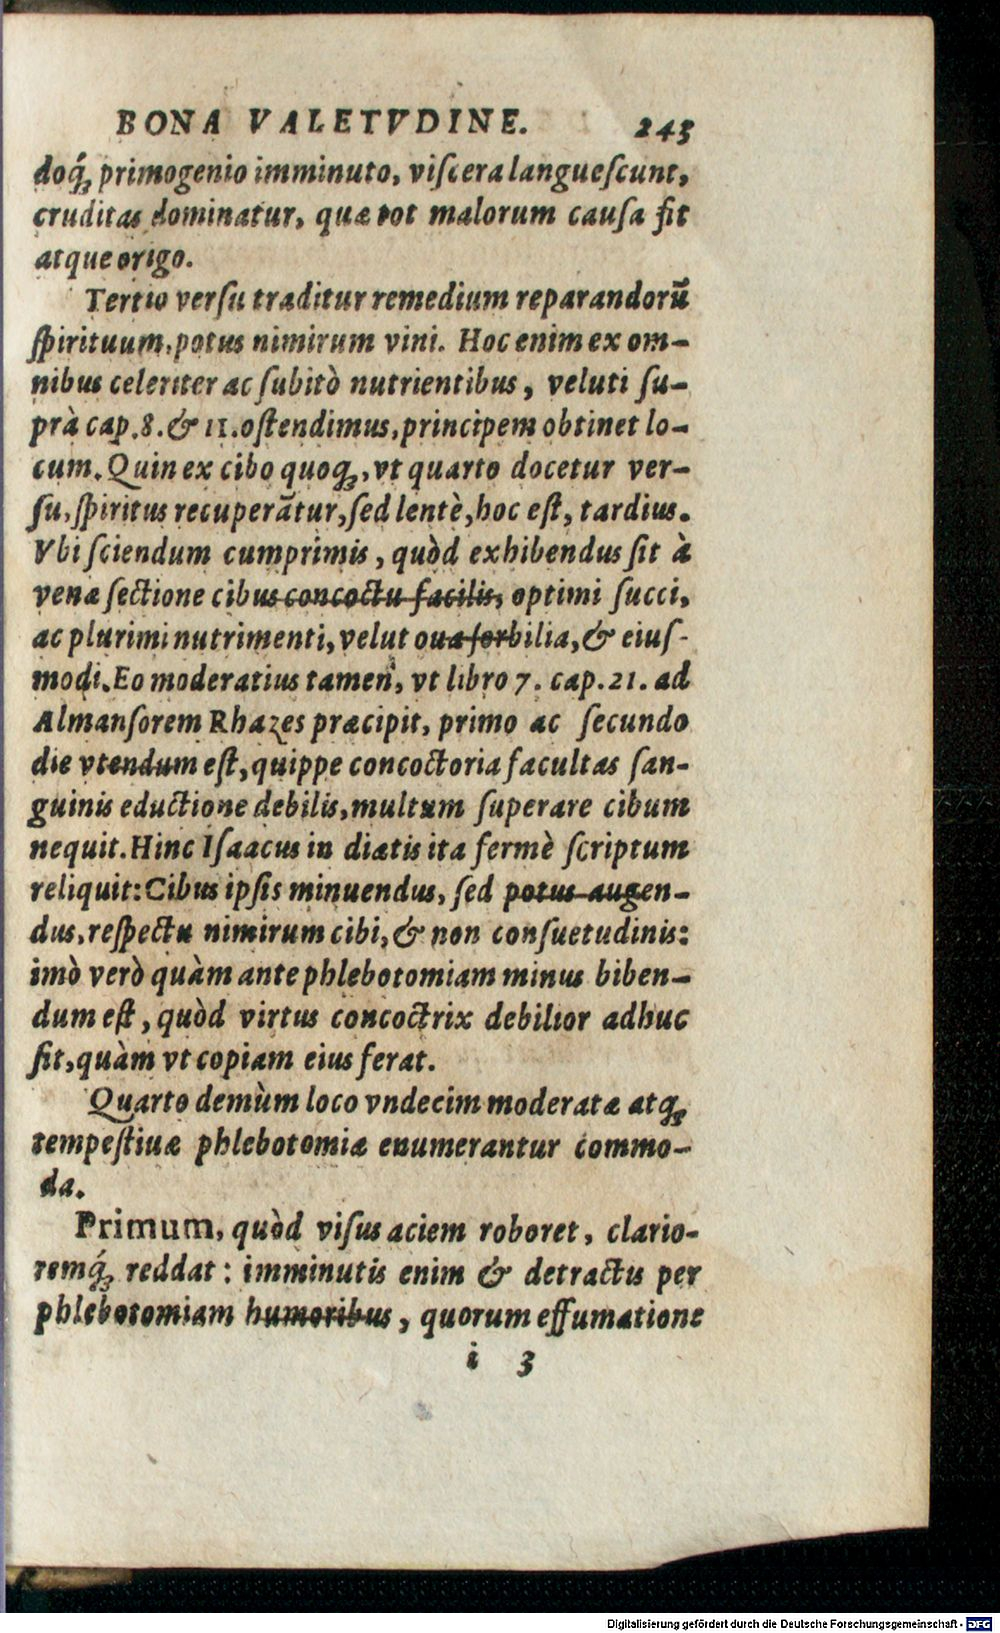 BONA VALETVDINE. 243
doq́; primogenio imminuto, viſcera langueſcunt,
cruditas dominatur, quæ tot malorum cauſa fit
atque origo.
Tertio verſu traditur remedium reparandorũ
ſpirituum, potus nimirum vini. Hoc enim ex om-
nibus celeriter ac ſubitò nutrientibus, veluti ſu-
prà cap. 8. & 11. oſtendimus, principem obtinet lo-
cum. Quin ex cibo quoq;, vt quarto docetur ver-
ſu, ſpiritus recuperãtur, ſed lentè, hoc eſt, tardius.
Vbi ſciendum cumprimis, quòd exhibendus ſit à
venæ ſectione cibus concoctu facilis, optimi ſucci,
ac plurimi nutrimenti, velut oua ſorbilia, & eiuſ-
modi. Eo moderatius tamen, vt libro 7. cap. 21. ad
Almanſorem Rhazes præcipit, primo ac ſecundo
die vtendum eſt, quippe concoctoria facultas ſan-
guinis eductione debilis, multum ſuperare cibum
nequit. Hinc Iſaacus in diætis ita fermè ſcriptum
reliquit: Cibus ipſis minuendus, ſed potus augen-
dus, reſpectu nimirum cibi, & non conſuetudinis:
imò verò quàm ante phlebotomiam minus biben-
dum eſt, quòd virtus concoctrix debilior adhuc
ſit, quàm vt copiam eius ferat.
Quarto demùm loco vndecim moderatæ atq;
tempeſtiuæ phlebotomiæ enumerantur commo-
da.
Primum, quòd viſus aciem roboret, clario-
remq́; reddat: imminutis enim & detractis per
phlebotomiam humoribus, quorum effumatione
i 3
Digitalisierung gefördert durch die Deutsche Forschungsgemeinschaft - DFG